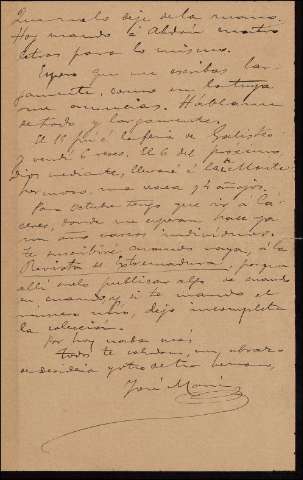 que no lo deje de la mano.
Hoy mando á Abdón cuatro
letras para lo mismo.
Espero que me escribas lar-
gamente, como en la tuya
me anuncias. Háblame
de todo y largamente.
El 15 fuí á la feria de Galisteo
y vendí 6 reses. El 6 del proximo
Dios mediante, llevaré á la de Monte-
hermoso una vaca y 4 añojos.
Para octubre tengo que ir á Cá-
ceres, donde me esperan hace ya
un año varios individuos.
Te suscribiré cuando vaya, á la
Revista de Extremadura, porque
allí suelo publicar algo de cuando
en cuando, y si te mando el
número mío, dejo incompleta
la colección.
Por hoy nada más.
Todos te saludan, un abrazo
de Desideria y otro de tu hermano,
José María